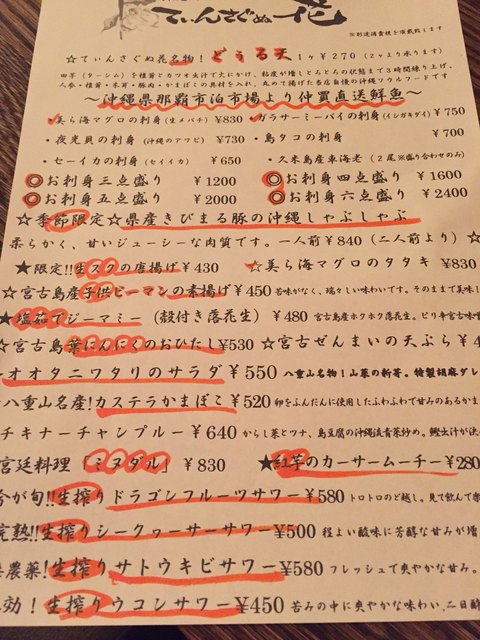 てぃんさぐぬ花
※別途消費税を頂戴致します
☆てぃんさぐぬ花名物! どぅる天 1ヶ¥270(2ヶより承ります)
田芋(ターンム)を種茸とカツオ出汁で火にかけ、粘度が増しとろとろの状態まで3時間練り上げ、
人参・椎茸・木耳・豚肉・かまぼこの具材を入れ、丸めて揚げた当店自慢の沖縄ソウルフード です
〜沖縄県那覇市泊市場より仲買直送鮮魚〜
・美ら海マグロの刺身(生メバチ)¥830 ・ガラサーミーバイの刺身(イシガキダイ)¥750
・夜光貝の刺身(沖縄のアワビ) ¥730 ・島タコの刺身 ¥700
・セーイカの刺身(セイイカ) ¥650 ・久米島産車海老(2尾※盛り合わせのみ)
◎お刺身三点盛り ¥1200 ◎お刺身四点盛り ¥1600
◎お刺身五点盛り ¥2000 ◎お刺身六点盛り ¥2400
☆季節限定☆県産きびまる豚の沖縄しゃぶしゃぶ
柔らかく、甘いジューシーな肉質です。一人前¥840(二人前より)☆
★限定!!生スクの唐揚げ ¥430 ☆美ら海マグロのタタキ ¥830
☆宮古島産子供ピーマンの素揚げ ¥450 苦味がなく、瑞々しい味わいです。そのままで美味し
★塩茹でジーマミー(殻付き落花生) ¥480 宮古島産ホクホク落花生。ピリ辛宮古味噌
☆宮古島葉にんにくのおひたし ¥530 ☆宮古ぜんまいの天ぷら ¥4
オオタニワタリのサラダ ¥550 八重山名物!山菜の新芽。特製胡麻ダレ
八重山名産!カステラかまぼこ ¥520 卵をふんだんに使用したふわふわで甘みのあるかま
チキナーチャンプルー ¥640 からし菜とツナ、島豆腐の沖縄流青菜炒め。鰹出汁が決
宮廷料理「ミヌダル」 ¥830 ★紅芋のカーサームーチー ¥280
今が旬!!生搾りドラゴンフルーツサワー ¥580 トロトロのど越し。見て飲んで楽
完熟!!生搾りシークゥーサーサワー ¥500 程よい酸味に芳醇な甘みが増
農薬!生搾りサトウキビサワー ¥580 フレッシュで爽やかな甘み。
効!生搾りウコンサワー ¥450 苦みの中に爽やかな味わい。二日酔